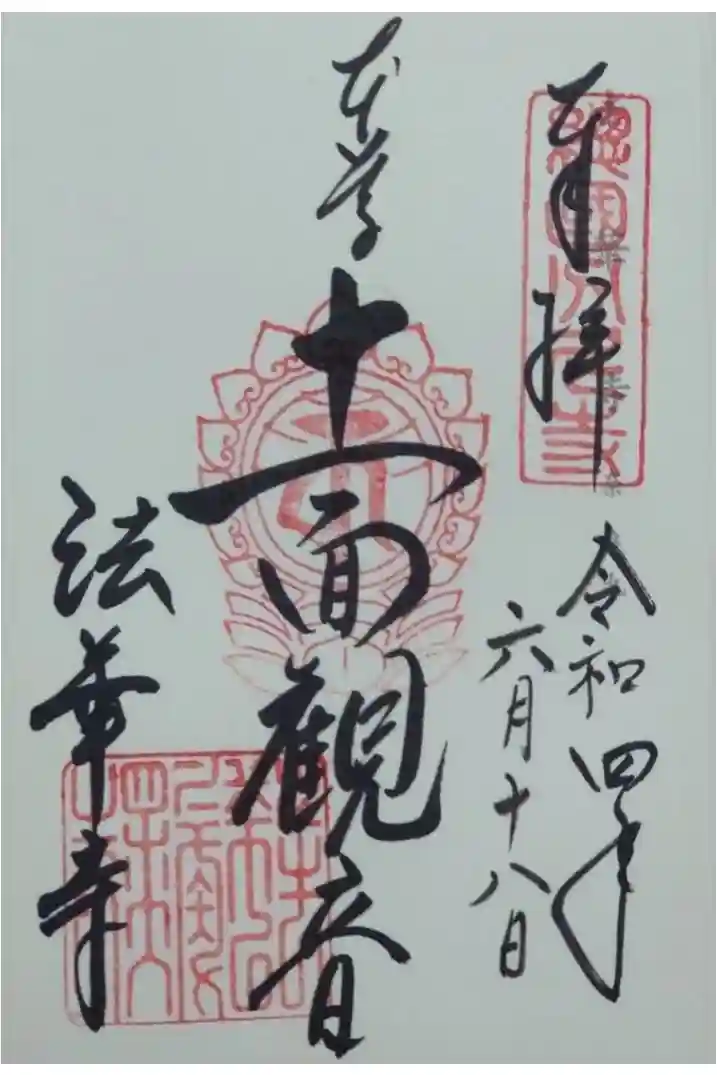 奉拝
令和四年
六月十八日
本尊
十一面観音
法華寺